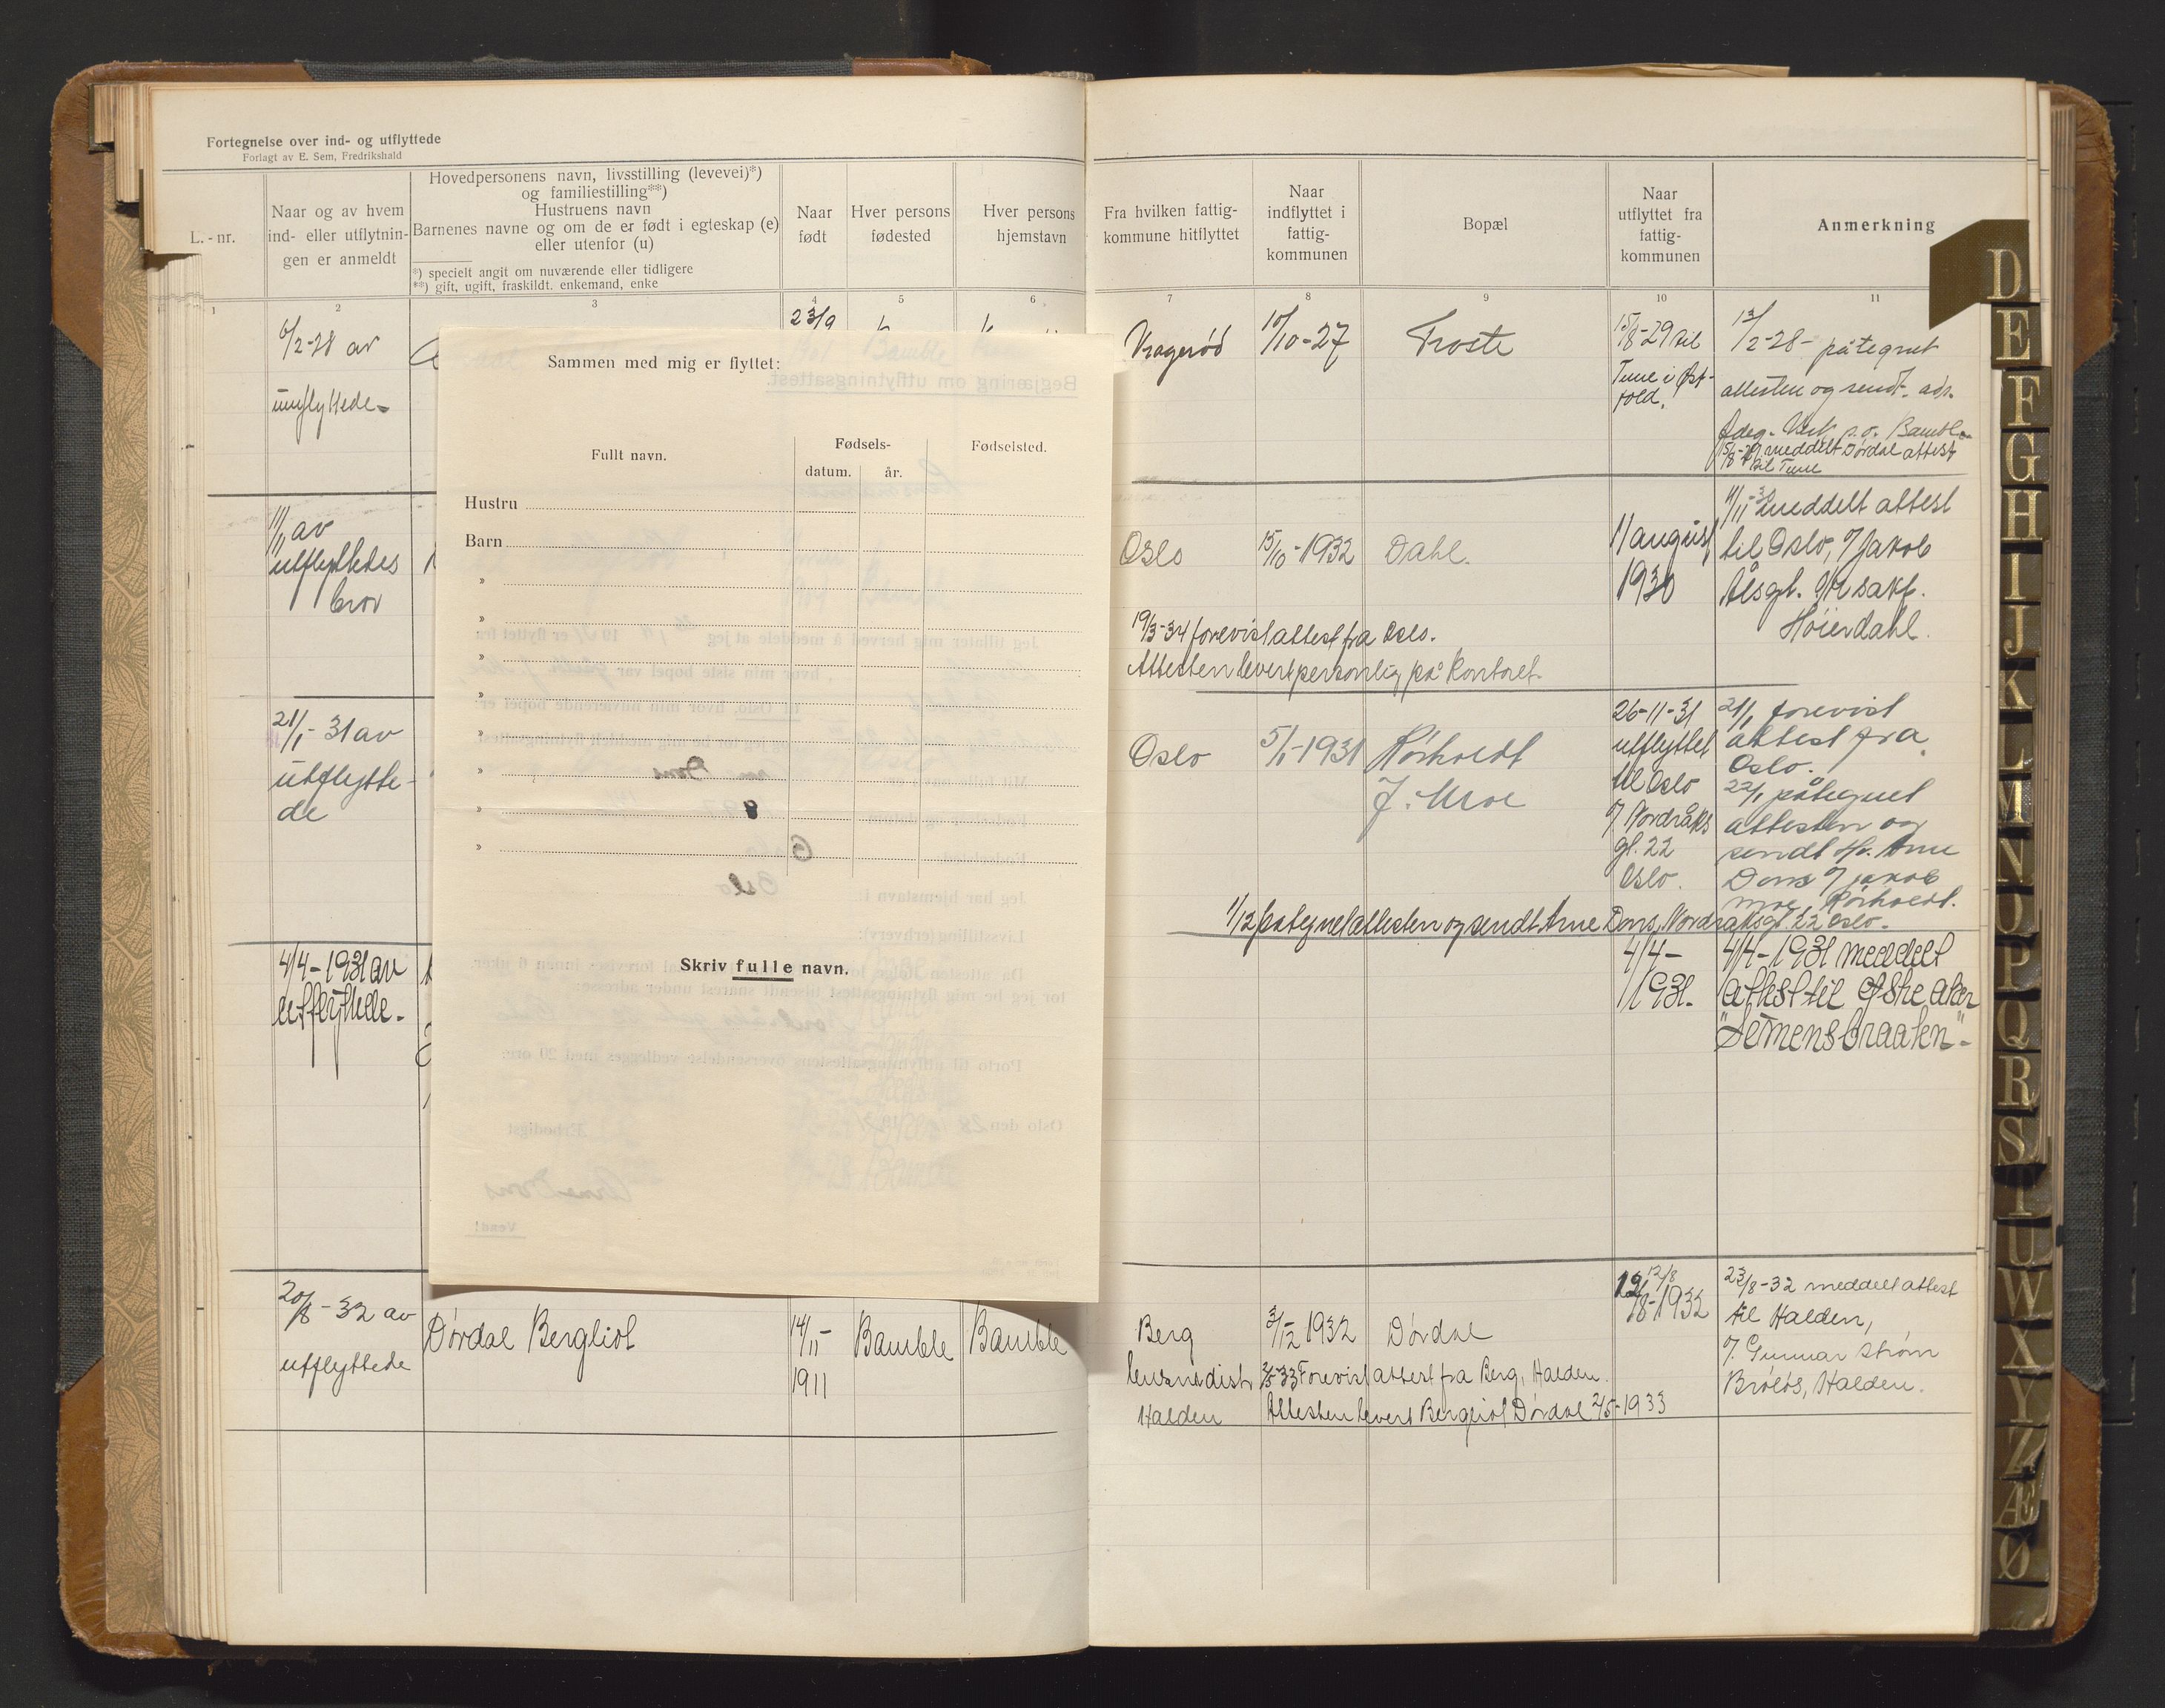 Fortegnelse over ind- og utflyttede
Forlagt av E. Sem, Fredrikshald
L.-nr.
Naar og av hvem
ind- eller utflytnin-
gen er anmeldt
Hovedpersonens navn, livsstilling (levevei)*)
og familiestilling**)
Hustruens navn
Barnenes navne og om de er født i egteskap (e)
eller utenfor (u)
*) specielt angit om nuværende eller tidligere
**) gift, ugift, fraskildt. enkemand, enke
Naar
født
Hver persons
fødested
Hver persons
hjemstavn
Fra hvilken fattig-
kommune hitflyttet
Naar
indflyttet i
fattig-
kommunen
Bopæl
Naar
utflyttet fra
fattig-
kommunen
Anmerkning
1 2 3 4 5 6 7 8 9 10 11
6/2-28 av
23/9
Kragerød
10/10-27
Froste
15/8-29 til
Tune i Øst-
fold.
13/2-28- påtegnet
attesten og sendt. adr.
p.o. Bamble
15/8-29 meddelt Dørdal attest
til Tune
Sammen med mig er flyttet:
Fullt navn.
Fødsels-
datum. år.
Fødselsted.
Hustru
Barn
»
»
»
»
»
»
»
»
Skriv fulle navn.
11/11 av
utflyttedes
bror
Oslo
15/10-1932
Dahl.
11 august
1930
11/11-30 meddelt attest
til Oslo,
Høierdahl.
19/3-34 forevist attest fra Oslo.
Attesten levert personlig på kontoret.
21/1-31 av
utflytte-
de
Oslo
5/1-1931
Rørholdt
J. Moe
26-11-31
utflyttet
til Oslo
Nordråks
gt. 22
Oslo.
21/1 forevist
attest fra
Oslo.
22/1 påtegnet
attesten og
sendt Hr. Arne
Dons % Jakob
Moe, Rørholdt.
1/12 påtegnet attesten og sendt Arne Dons, Nordraksgt. 22 Oslo.
4/4-1931 av
utflyttede.
4/4-
1931.
4/4-1931 meddelt
attest til Østre Aker
20/8-32 av
utflyttede
Dørdal Bergliot
14/11-
1911
Bamble
Bamble
Berg
lensmdistr
Halden
3/12 1932
Dørdal
12/8
12/8-1932
23/8-32 meddelt attest
til Halden,
% Gunnar Strøm
Halden.
2/5-33 Forevist attest fra Berg, Halden.
Attesten levert Bergliot Dørdal 2/5-1933
D
E
F
G
H
I
J
K
L
M
N
O
P
Q
R
S
T
U
W
X
Y
Z
Æ
Ø